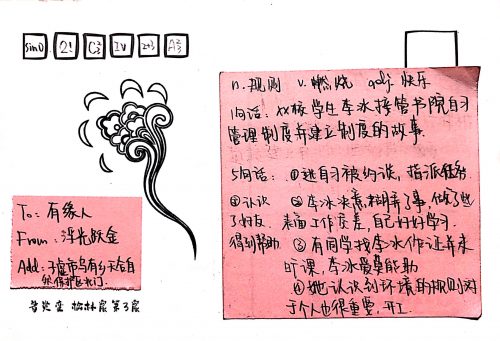 sin0 2! C₃² IV 2+3 A₃²
n. 规则 v. 燃烧 adj. 快乐
1句话: xx校学生李冰接管书院自
管理制度并建立制度的故事
5句话: ①逃自习被约谈, 指派任务
②李冰决意糊弄了事, 做了些
表面工作交差, 自己好好学习.
③有同学找李冰作证并未
旷课, 李冰爱莫能助
④认识
了女友.
得到帮助
⑤她认识到环境的规则对
于个人也很重要, 开工.
To: 有缘人
From: 浮光跃金
Add: 子虚市乌有乡大自
然保护区大门
音兑变 松林层第3层